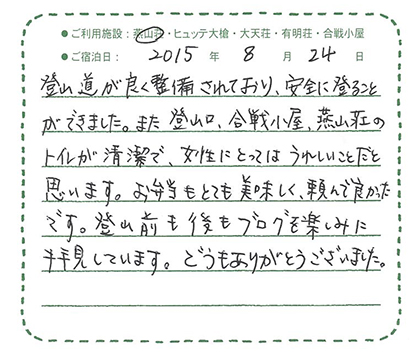 ● ご利用施設：燕山荘・ヒュッテ大槍・大天荘・有明荘・合戦小屋
● ご宿泊日： 2015 年 8 月 24 日
登山道が良く整備されており、安全に登ること
ができました。また登山口、合戦小屋、燕山荘の
トイレが清潔で、女性にとってはうれしいことだと
思います。お弁当もとても美味しく、頼んで良かった
です。登山前も後もブログを楽しみに
拝見しています。どうもありがとうございました。